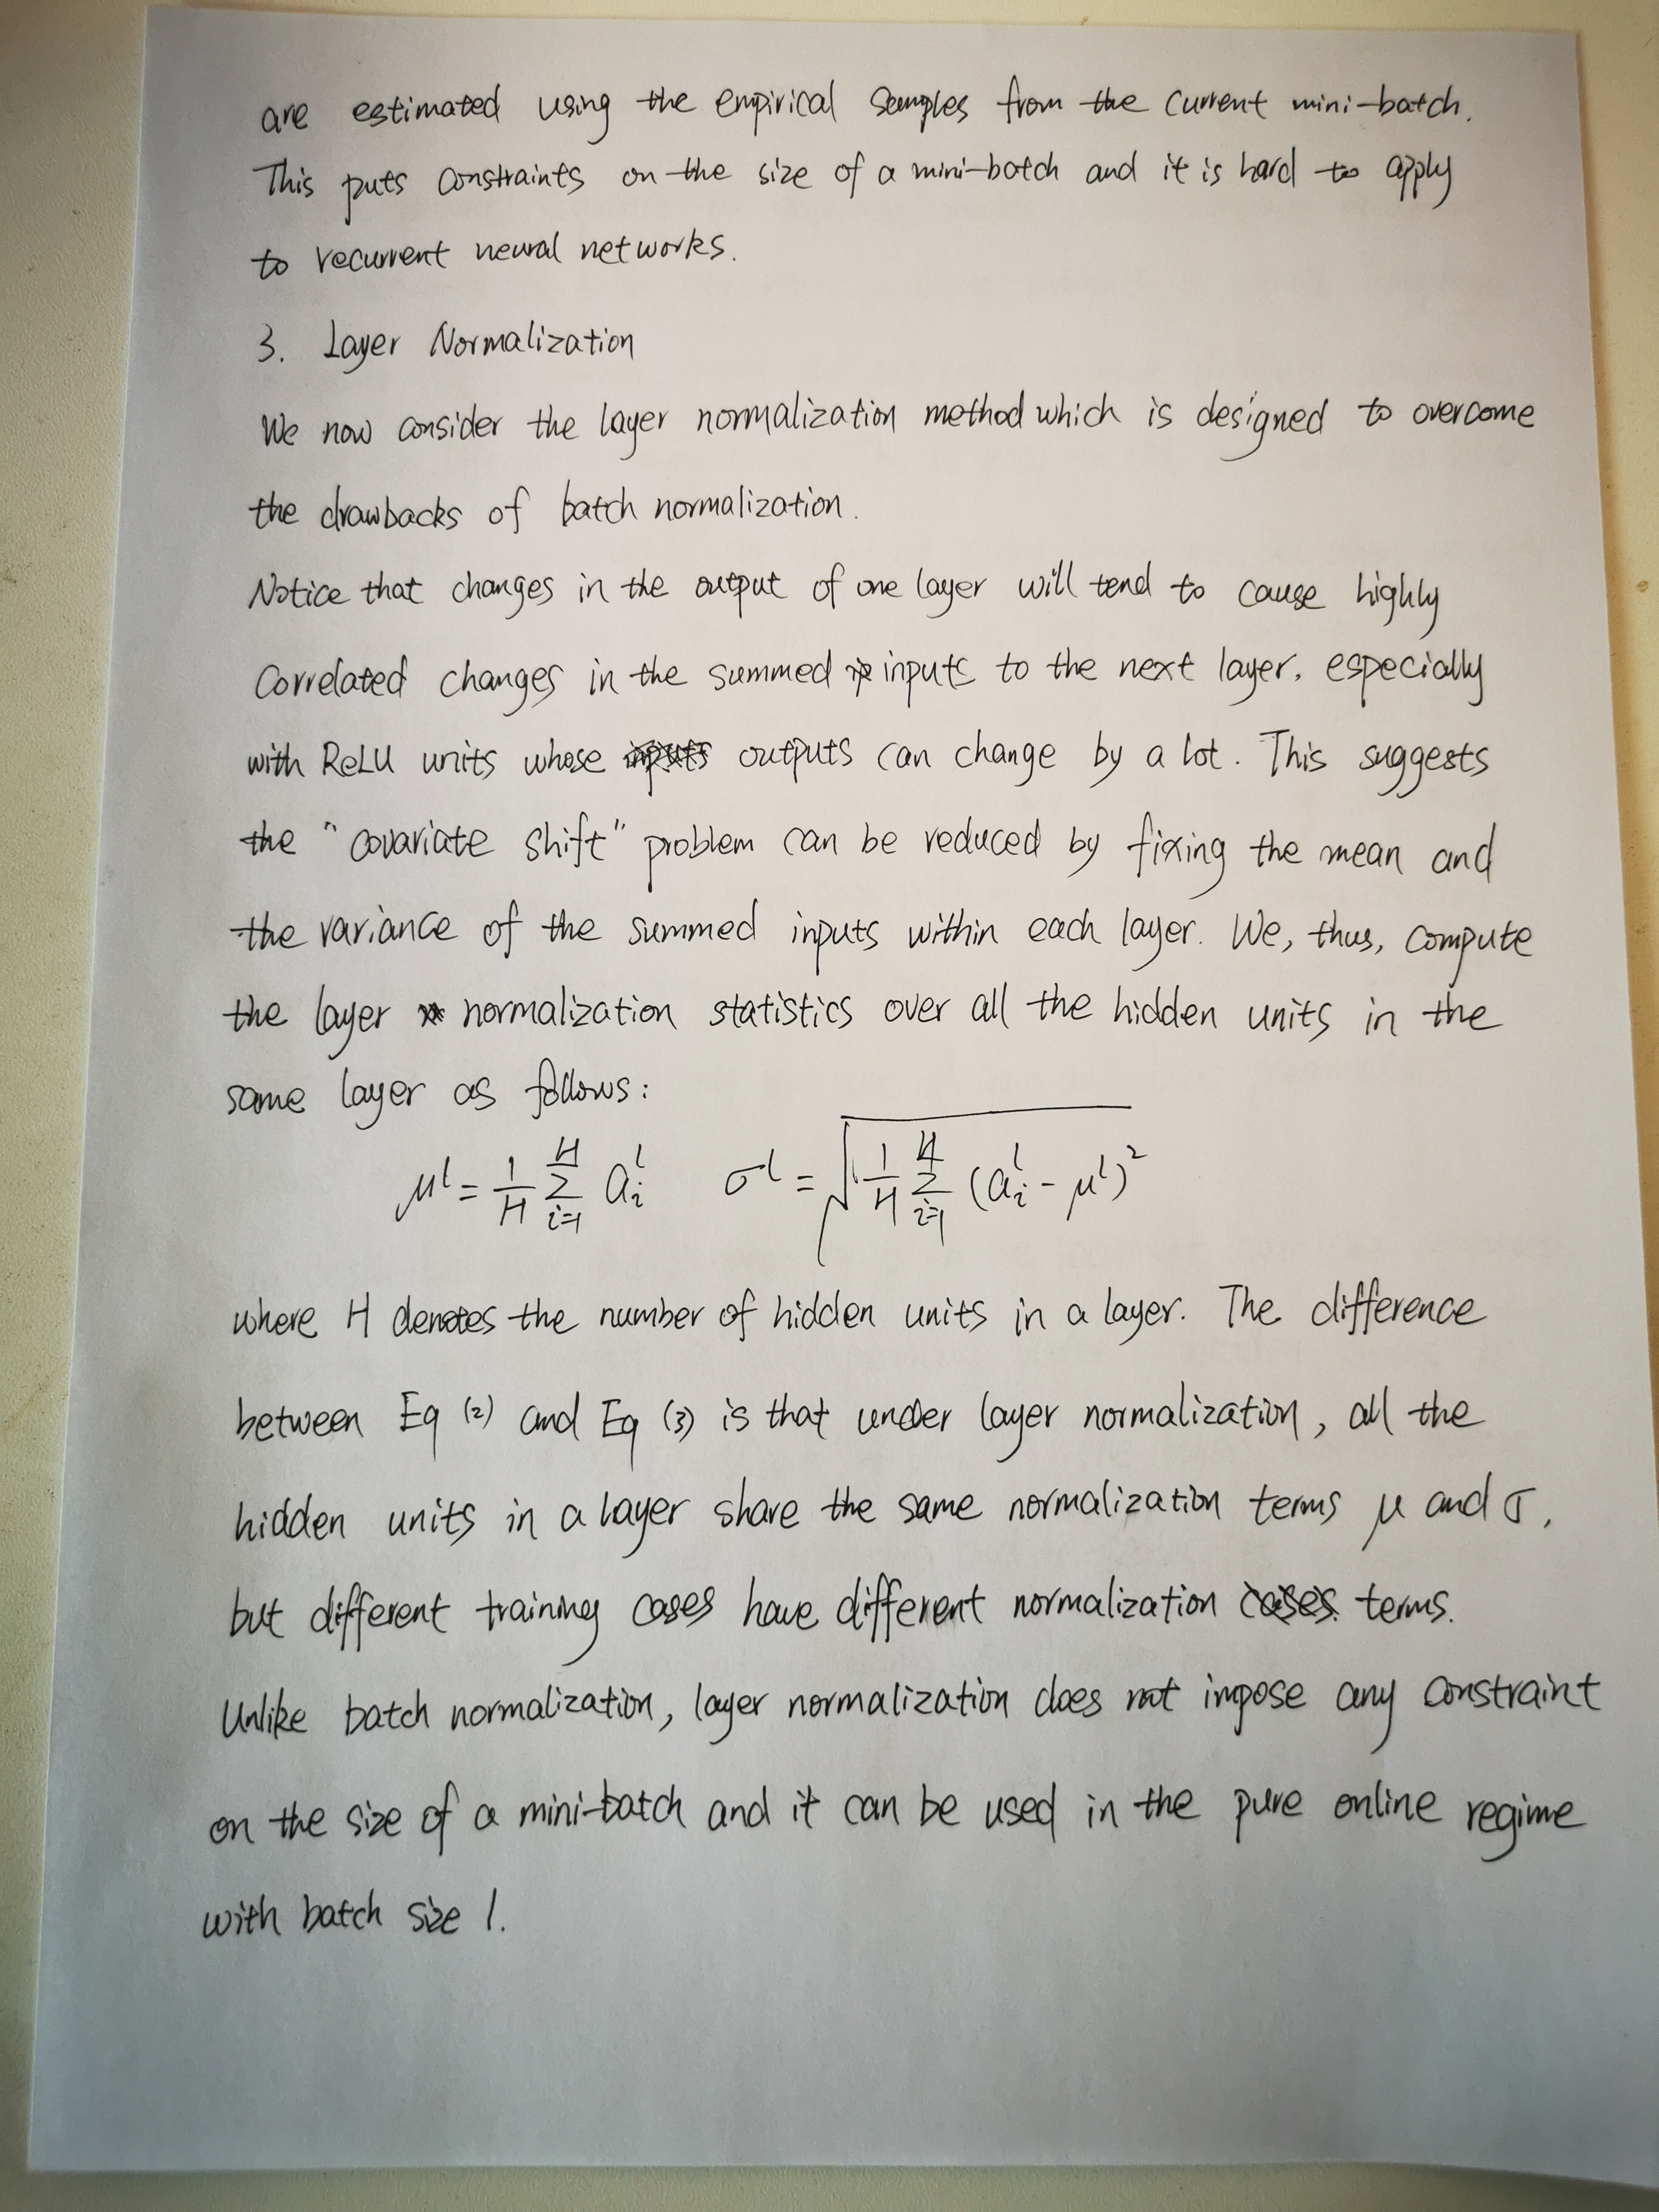 are estimated using the empirical samples from the current mini-batch.
This puts constraints on the size of a mini-batch and it is hard to apply
to recurrent neural networks.
3. Layer Normalization
We now consider the layer normalization method which is designed to overcome
the drawbacks of batch normalization.
Notice that changes in the output of one layer will tend to cause highly
Correlated changes in the summed inputs to the next layer, especially
with ReLU units whose outputs can change by a lot. This suggests
the "covariate shift" problem can be reduced by fixing the mean and
the variance of the summed inputs within each layer. We, thus, compute
the layer normalization statistics over all the hidden units in the
same layer as follows:
$\mu^l = \frac{1}{H} \sum_{i=1}^{H} a_i^l \quad \sigma^l = \sqrt{\frac{1}{H} \sum_{i=1}^{H} (a_i^l - \mu^l)^2}$
where H denotes the number of hidden units in a layer. The difference
between Eq (2) and Eq (3) is that under layer normalization, all the
hidden units in a layer share the same normalization terms μ and σ,
but different training cases have different normalization terms.
Unlike batch normalization, layer normalization does not impose any constraint
on the size of a mini-batch and it can be used in the pure online regime
with batch size 1.